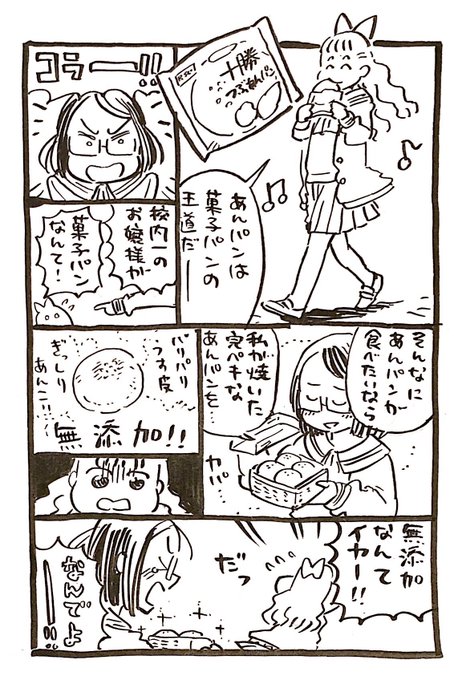 十勝
つぶあんパン
あんパンは
菓子パンの
王道だー
コラー!!
校内一の
お嬢様が
菓子パン
なんて!
そんなに
あんパンが
食べたいなら
私が焼いた
完ペキな
あんパンを…
カパ…
パリパリ
うす皮
ぎっしり
あんこ!!
無添加!!
無添加
なんて
イヤー!!
だっ
なんでよ
ーー!!